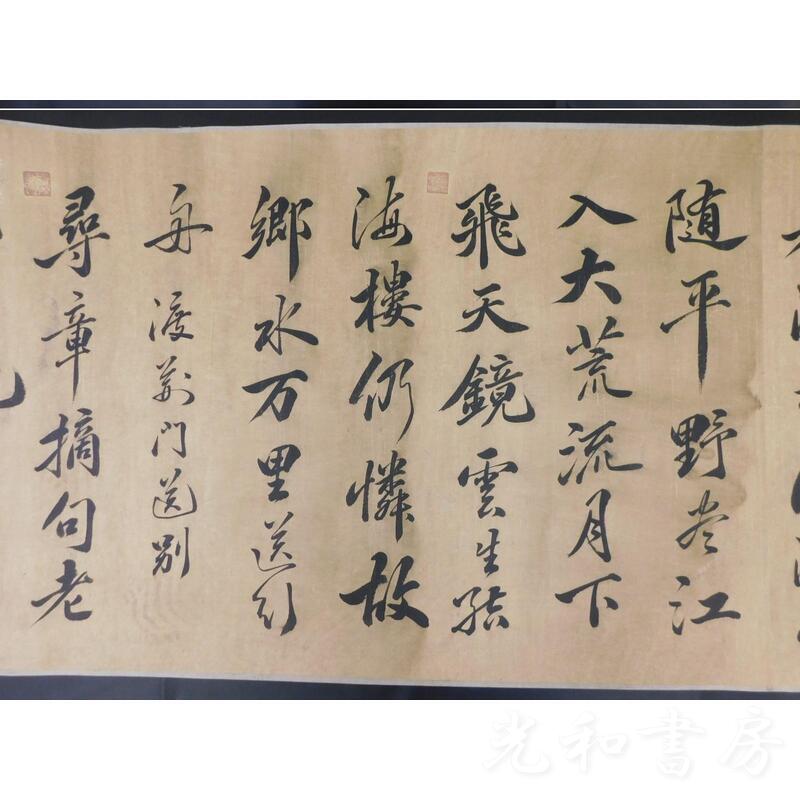 随平野尽江
入大荒流月下
飛天鏡雲生結
海樓仍憐故
鄉水万里送行
舟 渡荊門送別
尋章摘句老
光和書房